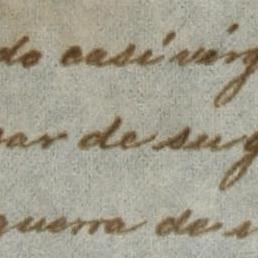 do casi vírg
sar de su g
guerra de